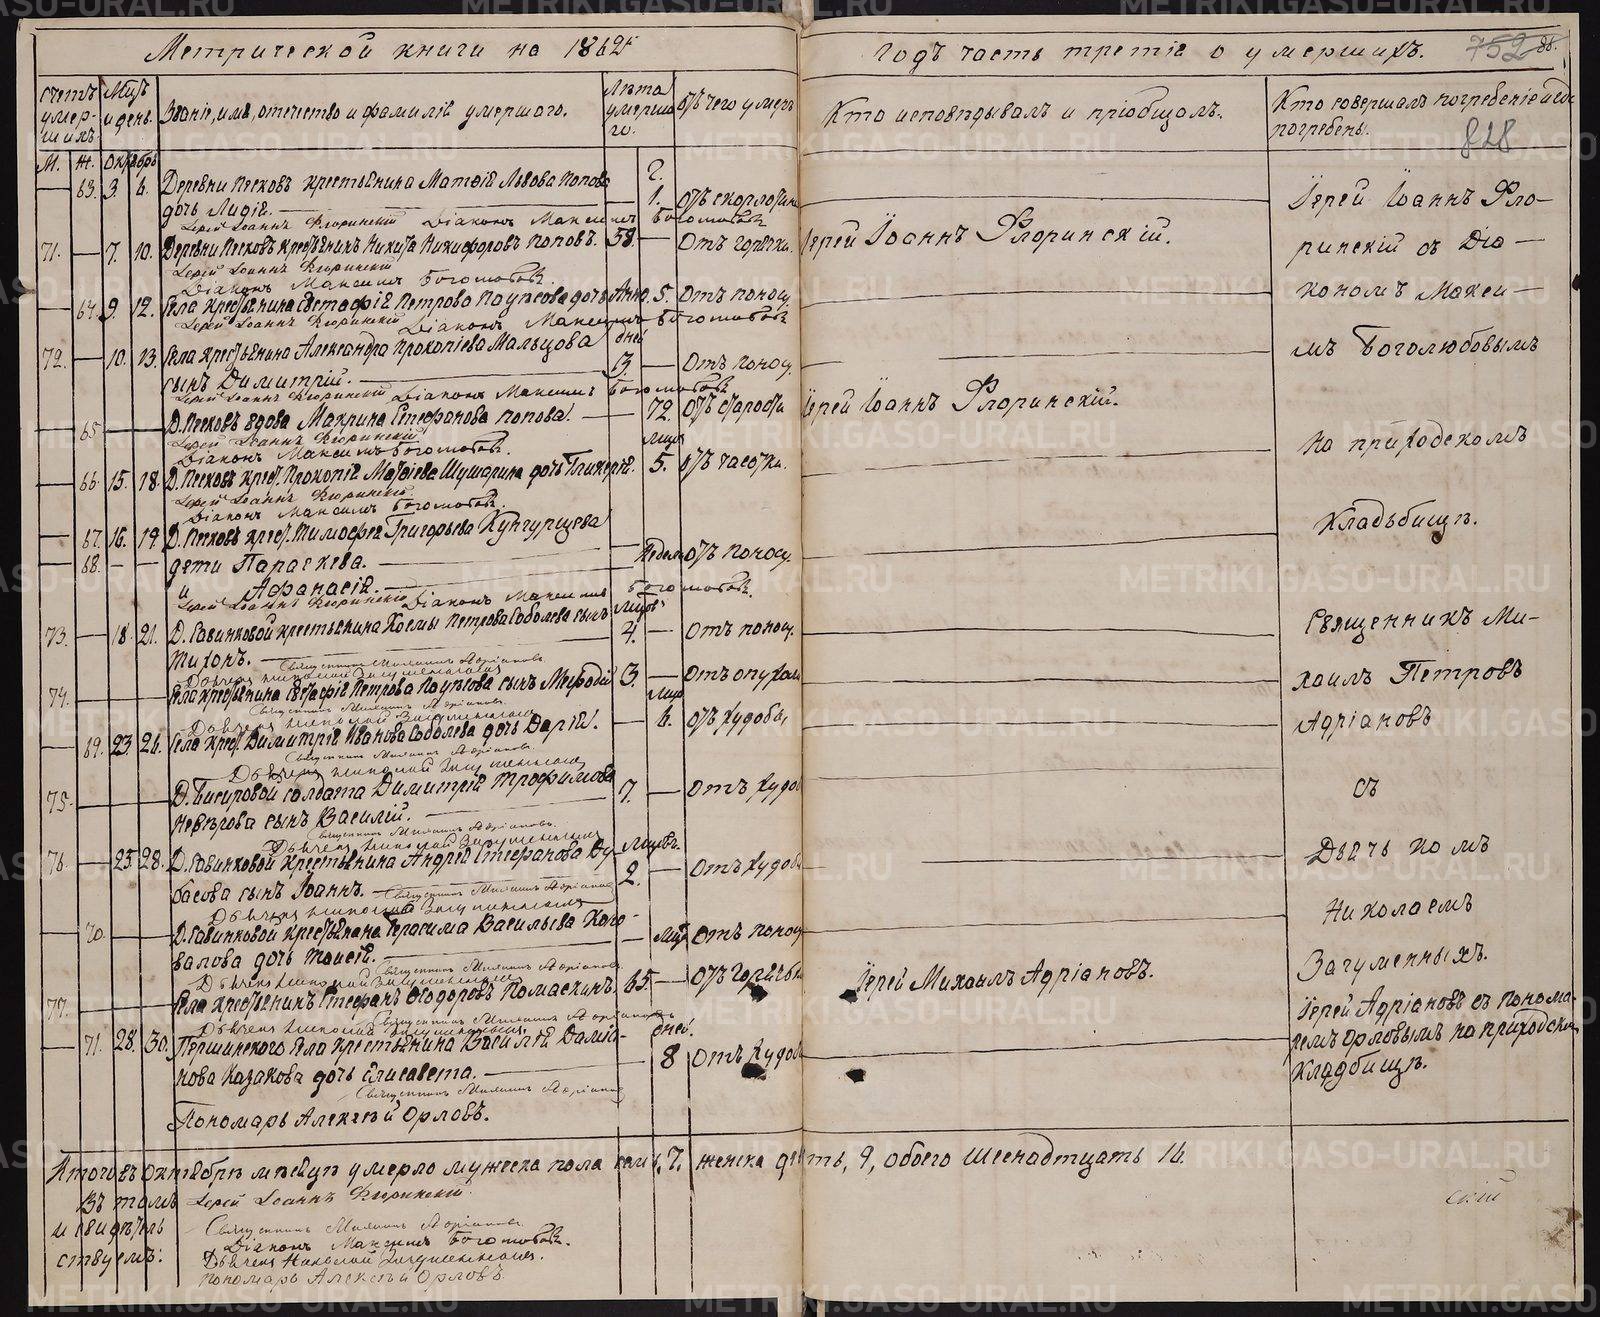 Метрической книги на 1862й
годъ часть третія о умершихъ.
752
88.
828
счетъ умер-шихъ
Мцъ и день.
Званіе, имя, отечество и фамилія умершаго.
Лѣта умерша го.
отъ чего умеръ
Кто исповѣдывалъ и пріобщалъ.
Кто совершалъ погребеніе и гдѣ погребены.
М. Ж. Октябрь
63. 3. 6. Деревни Песковъ крестьянина Матѳія Львова Попова 1. отъ скорлотины
дочь Лидія.
Іерей Іоаннъ Флоринскій Діаконъ Максимъ Боголюбовъ
71. 7. 10. Деревни Песковъ крестьянинъ Никита Никифоровъ Поповъ. 58. Отъ горячки. Іерей Іоаннъ Флоринскій.
Іерей Іоаннъ Флоринскій
Діаконъ Максимъ Боголюбовъ.
64. 9. 12. Села крестьянина Евстафія Петрова дочь Анна. 5. Отъ поносу.
Іерей Іоаннъ Флоринскій Діаконъ Максимъ Боголюбовъ
72. 10. 13. Села крестьянина Александра Прокопіева Мальцова дней 3. Отъ поносу.
сынъ Димитрій.
Іерей Іоаннъ Флоринскій Діаконъ Максимъ Боголюбовъ
65. Д. Песковъ вдова Макрина Стефанова Попова. 72. Отъ старости Іерей Іоаннъ Флоринскій.
Іерей Іоаннъ Флоринскій
Діаконъ Максимъ Боголюбовъ.
66. 15. 18. Д. Песковъ крест. Прокопія Матѳіева Шушарина дочь Гликерія. 5. отъ чахотки.
Іерей Іоаннъ Флоринскій
Діаконъ Максимъ Боголюбовъ.
67. 16. 19. Д. Песковъ крест. Тимоѳея Григорьева Кунгурцева
68. дети Параскева. недели отъ поносу.
и Афанасія.
Іерей Іоаннъ Флоринскій Діаконъ Максимъ Боголюбовъ.
73. 18. 21. Д. Савинковой крестьянина Космы Петрова Соболева сынъ 4. Отъ поносу.
Тихонъ.
Священникъ Михаилъ Адріановъ
74. Села крестьянина Евстафія Петрова сынъ Меѳодій 3. Отъ опухоли
Священникъ Михаилъ Адріановъ
69. 23. 26. Села крест. Димитрія Иванова Соболева дочь Дарія. 6. отъ худобы
Священникъ Михаилъ Адріановъ
75. солдата Димитрія Трофимова 7. Отъ худобы
сынъ Василій.
Священникъ Михаилъ Адріановъ
76. 25. 28. Д. Савинковой крестьянина Андрея Стефанова Ду- 2. Отъ худобы
басова сынъ Іоаннъ. Священникъ Михаилъ Адріановъ
70. Д. Савинковой крестьянина Герасима Васильева Коно- Отъ поносу
валова дочь Таисія.
Священникъ Михаилъ Адріановъ
77. Села крестьянинъ Стефанъ Ѳедоровъ Помаскинъ. 65. Отъ горячьки Іерей Михаилъ Адріановъ.
Священникъ Михаилъ Адріановъ
71. 28. 30. Першинского села крестьянина Василія Даміа- дней. 8 Отъ худобы
нова Казакова дочь Елисавета.
Священникъ Михаилъ Адріановъ
Пономарь Алексѣй Орловъ.
Іерей Іоаннъ Фло-
ринскій съ Діа-
кономъ Макси-
мъ Боголюбовымъ
на приходскомъ
кладьбищѣ.
Священникъ Ми-
хаилъ Петровъ
Адріановъ
съ
Дьячькомъ
Николаемъ
Загуменныхъ.
Іерей Адріановъ съ понома-
ремъ Орловымъ на приходском
кладбищѣ.
Итого въ октябрѣ мѣсяцѣ умерло мужеска пола семь, 7. женска девять, 9, обоего шеснадтцать 16.
Въ томъ Іерей Іоаннъ Флоринскій.
и свидѣтель Священникъ Михаилъ Адріановъ
ствуемъ: Діаконъ Максимъ Боголюбовъ.
Дьячекъ Николай Загуменныхъ.
Пономарь Алексѣй Орловъ.
скій
METRIKI.GASO-URAL.RU